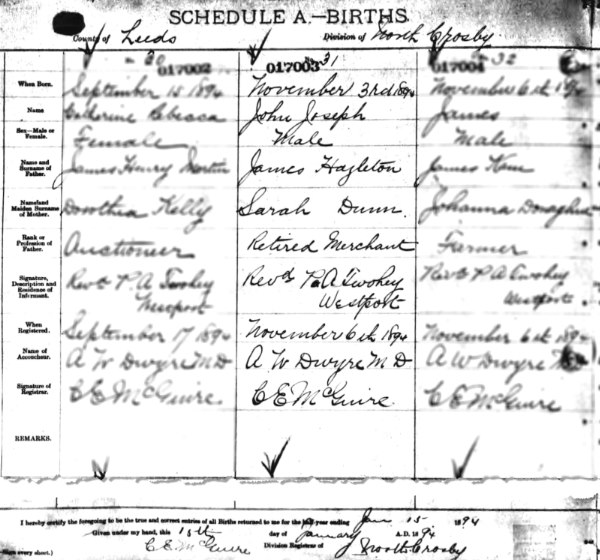 SCHEDULE A.—BIRTHS.
County of Leeds Division of North Crosby
30 31 32
017002 017003 017004
When Born. September 15 1894 November 3rd 1894 November 6th 1894
Name Catherine Rebecca John Joseph James
Sex—Male or Female. Female Male Male
Name and Surname of Father. James Henry James Hazleton James
Name and Maiden Surname of Mother. Dorothea Kelly Sarah Dunn. Johanna
Rank or Profession of Father. Auctioneer Retired Merchant Farmer
Signature, Description and Residence of Informant. Revd P. A Twohey Westport Revd P. A Twohey Westport Revd P A Twohey Westport
When Registered. September 17 1894 November 6th 1894 November 6th 1894
Name of Accoucheur. A W Dwyre M D A W Dwyre M D A W Dwyre
Signature of Registrar. C E McGuire. C E McGuire. C E McGuire
REMARKS.
I hereby certify the foregoing to be the true and correct entries of all Births returned to me for the year ending 15 1894
Given under my hand, this 15th day of January A.D. 1894
C E McGuire Division Registrar of North Crosby
every sheet.)